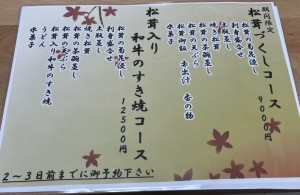 期間限定
松茸づくしコース
9000円
松茸の菊花浸し
利身盛合せ
土瓶蒸し
焼き松茸
松茸の茶碗蒸し
松茸の天ぷら
松茸御飯 赤出汁 香の物
水菓子
松茸入り
和牛のすき焼コース
12500円
松茸の菊花浸し
利身盛合せ
土瓶蒸し
焼き松茸
松茸の茶碗蒸し
松茸の天ぷら
松茸入り和牛のすき焼
うどん
水菓子
2～3日前までに御予約下さい